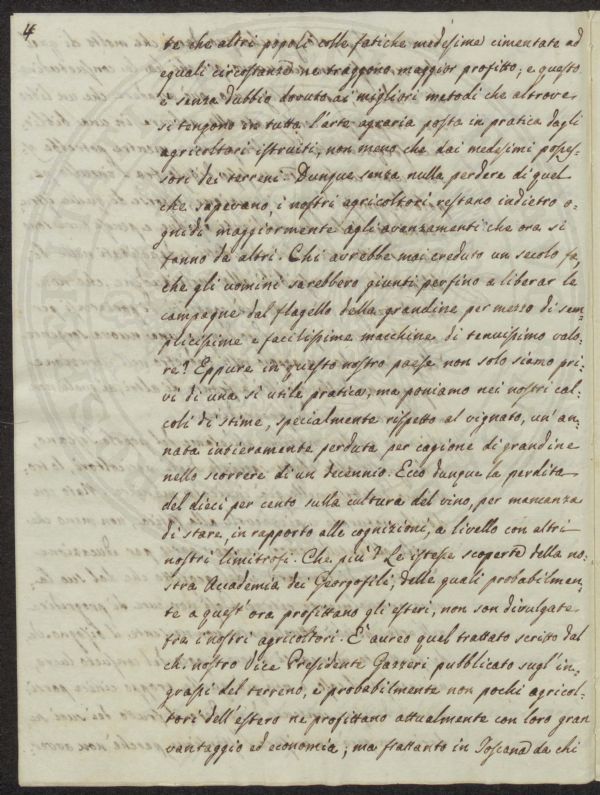 4
te che altri popoli colle fatiche medesime cimentate ad
eguali circostanze ne traggono maggior profitto; e questo
è senza dubbio dovuto ai migliori metodi che altrove
si tengono in tutta l'arte agraria posta in pratica dagli
agricoltori istruiti, non meno che dai medesimi posses=
sori dei terreni. Dunque senza nulla perdere di quel
che sapevano, i nostri agricoltori restano indietro o=
gnidì maggiormente agli avanzamenti che ora si
fanno da altri. Chi avrebbe mai creduto un secolo fa,
che gli uomini sarebbero giunti perfino a liberar le
campagne dal flagello della grandine per mezzo di sem=
plicissime e facilissime macchine di tenuissimo valo=
re? Eppure in questo nostro paese non solo siamo pri=
vi di una sì utile pratica, ma poniamo nei nostri cal=
coli di stime, specialmente rispetto al vignato, un'an=
nata intieramente perduta per cagione di grandine
nello scorrere di un decennio. Ecco dunque la perdita
del dieci per cento sulla cultura del vino, per mancanza
di stare, in rapporto alle cognizioni, a livello con altri
nostri limitrofi. Che più? Le istesse scoperte della no=
stra Accademia dei Georgofili, delle quali probabilmen=
te a quest'ora profittano gli esteri, non son divulgate
fra i nostri agricoltori. È aureo quel trattato scritto dal
ch. nostro Vice Presidente Gazzeri pubblicato sugl'in=
grassi del terreno, e probabilmente non pochi agricol=
tori dell'estero ne profittano attualmente con loro gran
vantaggio ed economia; ma frattanto in Toscana da chi